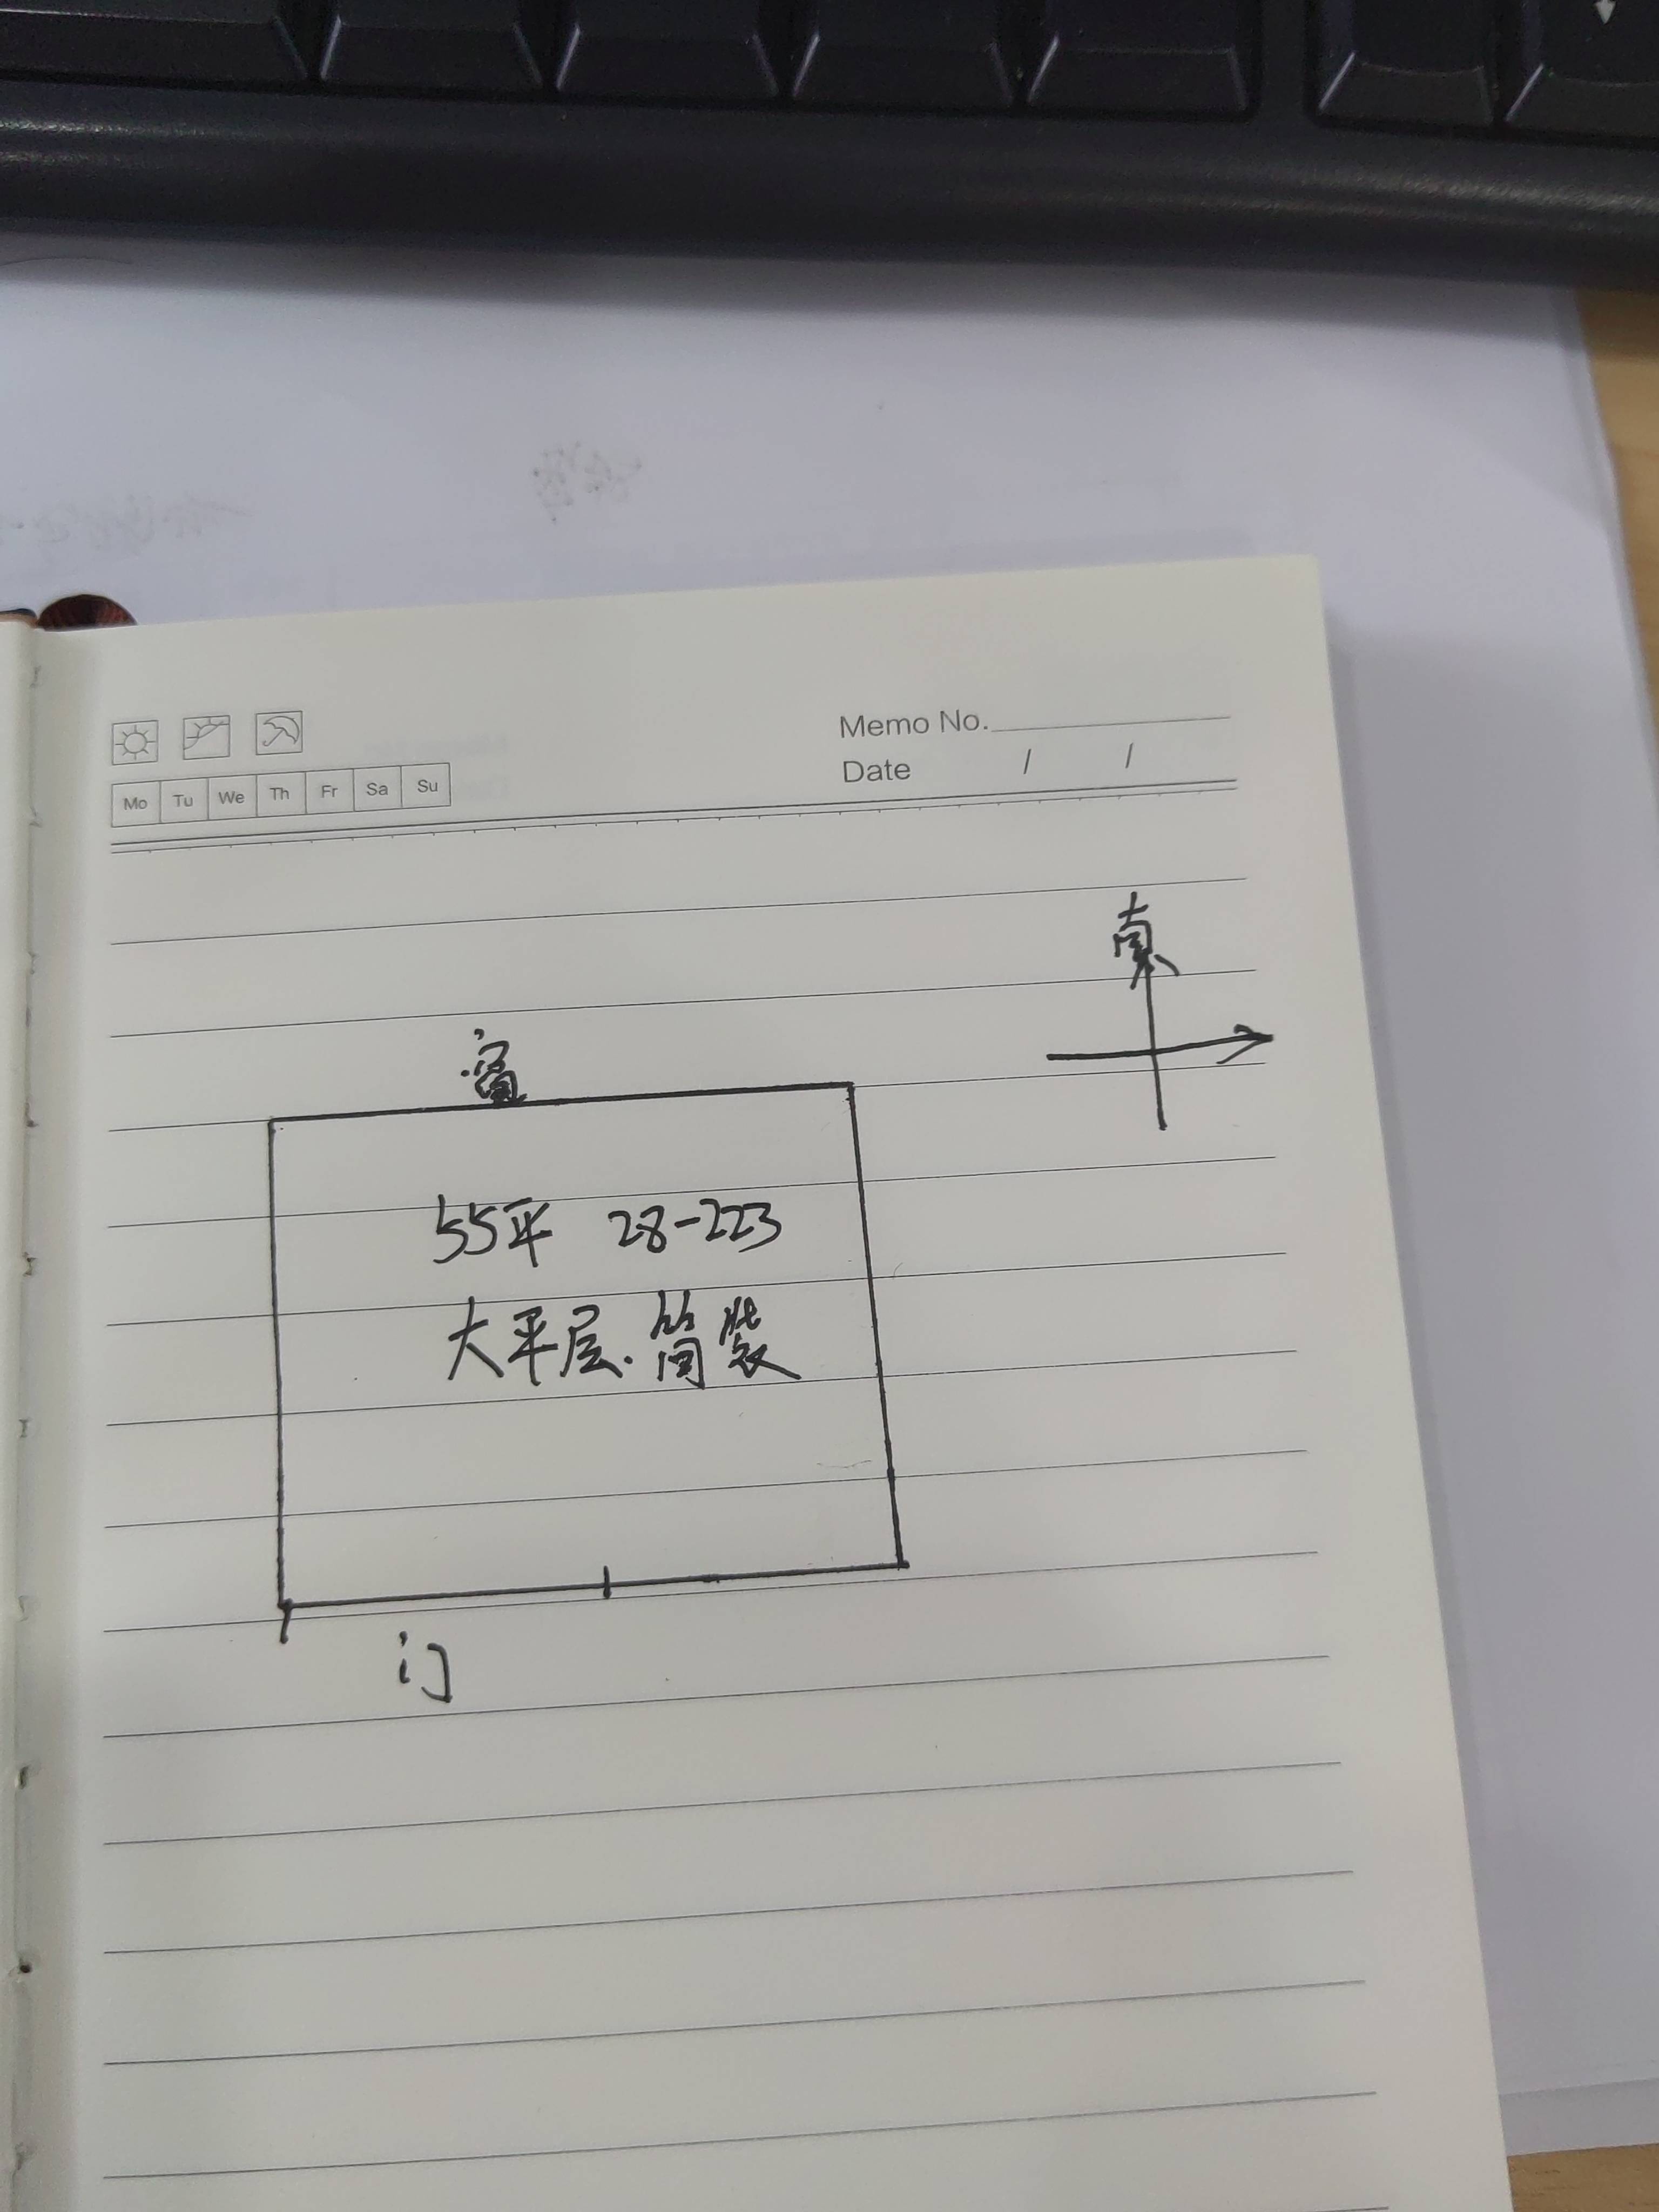 Memo No.
Date / /
Mo Tu We Th Fr Sa Su
南
窗
55平 28-223
大平层.简装
门